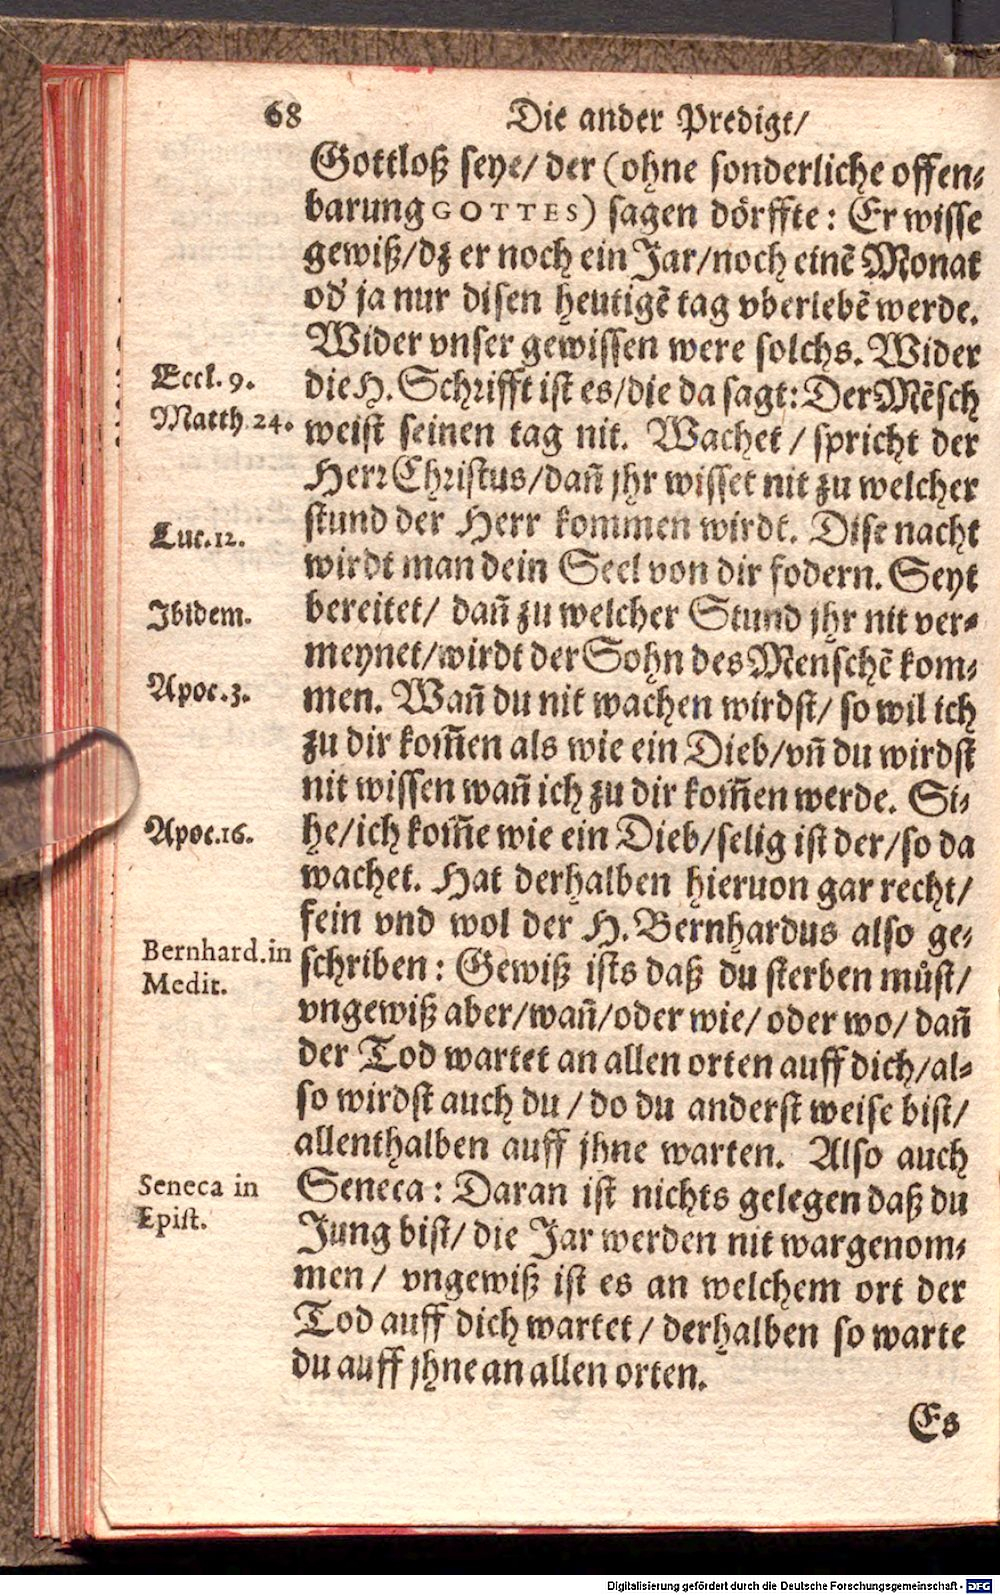 68 Die ander Predigt/
Gottloß seye/ der (ohne sonderliche offen⸗
barung GOTTES) sagen dörffte: Er wisse
gewiß/dz er noch ein Jar/noch einẽ Monat
od' ja nur disen heutigẽ tag vberlebẽ werde.
Wider vnser gewissen were solchs. Wider
Eccl. 9. die H. Schrifft ist es/die da sagt: Der Mẽsch
Matth 24. weist seinen tag nit. Wachet / spricht der
Herr Christus/dañ jhr wisset nit zu welcher
stund der Herr kommen wirdt. Dise nacht
Luc.12. wirdt man dein Seel von dir fodern. Seyt
Ibidem. bereitet/ dañ zu welcher Stund jhr nit ver⸗
meynet/wirdt der Sohn des Menschẽ kom⸗
Apoc.3. men. Wañ du nit wachen wirdst/ so wil ich
zu dir kom̃en als wie ein Dieb/vñ du wirdst
nit wissen wañ ich zu dir kom̃en werde. Si⸗
Apoc.16. he/ich kom̃e wie ein Dieb/selig ist der/so da
wachet. Hat derhalben hieruon gar recht/
fein vnd wol der H. Bernhardus also ge⸗
Bernhard.in schriben: Gewiß ists daß du sterben můst/
Medit.
vngewiß aber/wañ/oder wie/ oder wo/ dañ
der Tod wartet an allen orten auff dich/al⸗
so wirdst auch du / do du anderst weise bist/
allenthalben auff jhne warten. Also auch
Seneca in Seneca: Daran ist nichts gelegen daß du
Epist.
Jung bist/ die Jar werden nit wargenom⸗
men / vngewiß ist es an welchem ort der
Tod auff dich wartet / derhalben so warte
du auff jhne an allen orten.
Es
Digitalisierung gefördert durch die Deutsche Forschungsgemeinschaft - DFG